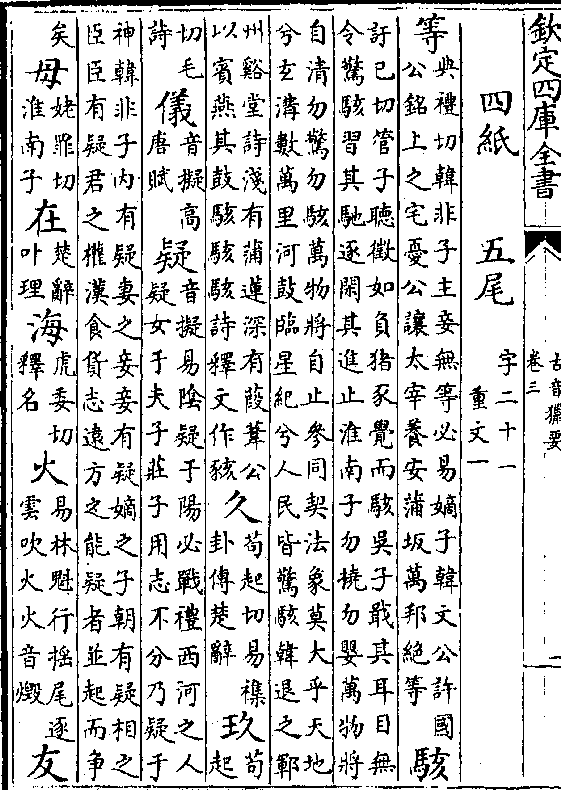 欽定四庫全書
古音獵要
卷三
四紙
五尾
字二十一
重文一
等
典禮切韓非子主妾無等必易嫡子韓文公許國
公銘上之宅憂公讓太宰養安蒲坂萬邦絶等
駭
訏已切管子聽徵如負猪豕覺而駭吳子戢其耳目無
令驚駭習其馳逐閑其進止淮南子勿撓勿嬰萬物將
自清勿驚勿駭萬物將自止參同契法象莫大乎天地
兮玄溝數萬里河鼓臨星紀兮人民皆驚駭韓退之鄆
州谿堂詩淺有蒲蓮深有葭葦公
以賓燕其鼓駭駭詩釋文作豥
久
苟起切易襍
卦傳楚辭
玖
苟起
切毛
詩
儀
音擬高
唐賦
疑
音擬易陰疑于陽必戰禮西河之人
疑女于夫子莊子用志不分乃疑于
神韓非子内有疑妻之妾妾有疑嫡之子朝有疑相之
臣臣有疑君之權漢食貨志遠方之能疑者並起而争
矣
母
姥罪切
淮南子
在
楚辭
叶理
海
虎委切
釋名
火
易林魁行揺尾逐
雲吹火火音燬
友